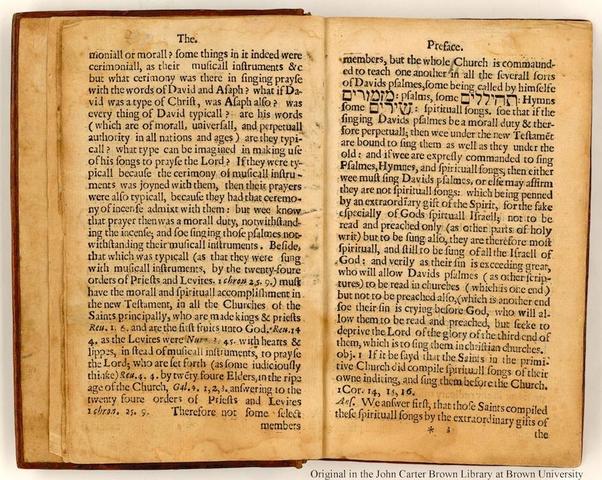 The.
moniall or morall? some things in it indeed were
cerimoniall, as their musicall instruments &c
but what cerimony was there in singing prayse
with the words of David and Asaph? what if Da-
vid was a type of Christ, was Asaph also? was
every thing of David typicall? are his words
(which are of morall, universall, and perpetuall
authority in all nations and ages) are they typi-
call? what type can be imagined in making use
of his songs to prayse the Lord? If they were ty-
picall because the cerimony of musicall instru-
ments was joyned with them, then their prayers
were also typicall, because they had that ceremo-
ny of incense admixt with them: but wee know
that prayer then was a morall duty, notwithstand-
ing the incense; and soe singing those psalmes not-
withstanding their musicall instruments. Beside,
that which was typicall (as that they were sung
with musicall instruments, by the twenty-foure
orders of Priests and Levites. 1 chron 25. 9.) must
have the morall and spirituall accomplishment in
the new Testament, in all the Churches of the
Saints principally, who are made kings & priests
Reu. 1. 6. and are the first fruits unto God. Reu. 14
4. as the Levites were Num. 3. 45. with hearts &
lippes, in stead of musicall instruments, to prayse
the Lord; who are set forth (as some iudiciously
thinke) Reu. 4. 4. by twēty foure Elders, in the ripe
age of the Church, Gal. 4. 1,2,3. answering to the
twenty foure orders of Priests and Levites
1 chron. 25. 9. Therefore not some select
members
Preface.
members, but the whole Church is commaund-
ed to teach one another in all the severall sorts
of Davids psalmes, some being called by himselfe
מזמורים: psalms, some תהילים: Hymns
some שירים: spirituall songs. soe that if the
singing Davids psalmes be a morall duty & ther-
fore perpetuall; then wee under the new Testamēt
are bound to sing them as well as they under the
old: and if wee are expresly commanded to sing
Psalmes, Hymnes, and spirituall songs, then either
wee must sing Davids psalmes, or else may affirm
they are not spirituall songs: which being penned
by an extraordinary gift of the Spirit, for the sake
especially of Gods spirituall Israell; not to be
read and preached only (as other parts of holy
writ) but to be sung also, they are therefore most
spirituall, and still to be sung of all the Israell of
God: and verily as their sin is exceeding great,
who will allow Davids psalmes (as other scrip-
tures) to be read in churches (which is one end)
but not to be preached also, (which is another end
soe their sin is crying before God, who will al-
low them to be read and preached, but seeke to
deprive the Lord of the glory of the third end of
them, which is to sing them in christian churches.
obj. 1 If it be sayd that the Saints in the primi-
tive Church did compile spirituall songs of their
owne inditing, and sing them before the Church.
1 Cor. 14, 15, 16.
Ans. We answer first, that those Saints compiled
these spirituall songs by the extraordinary gifts of
* 3
the
Original in the John Carter Brown Library at Brown University